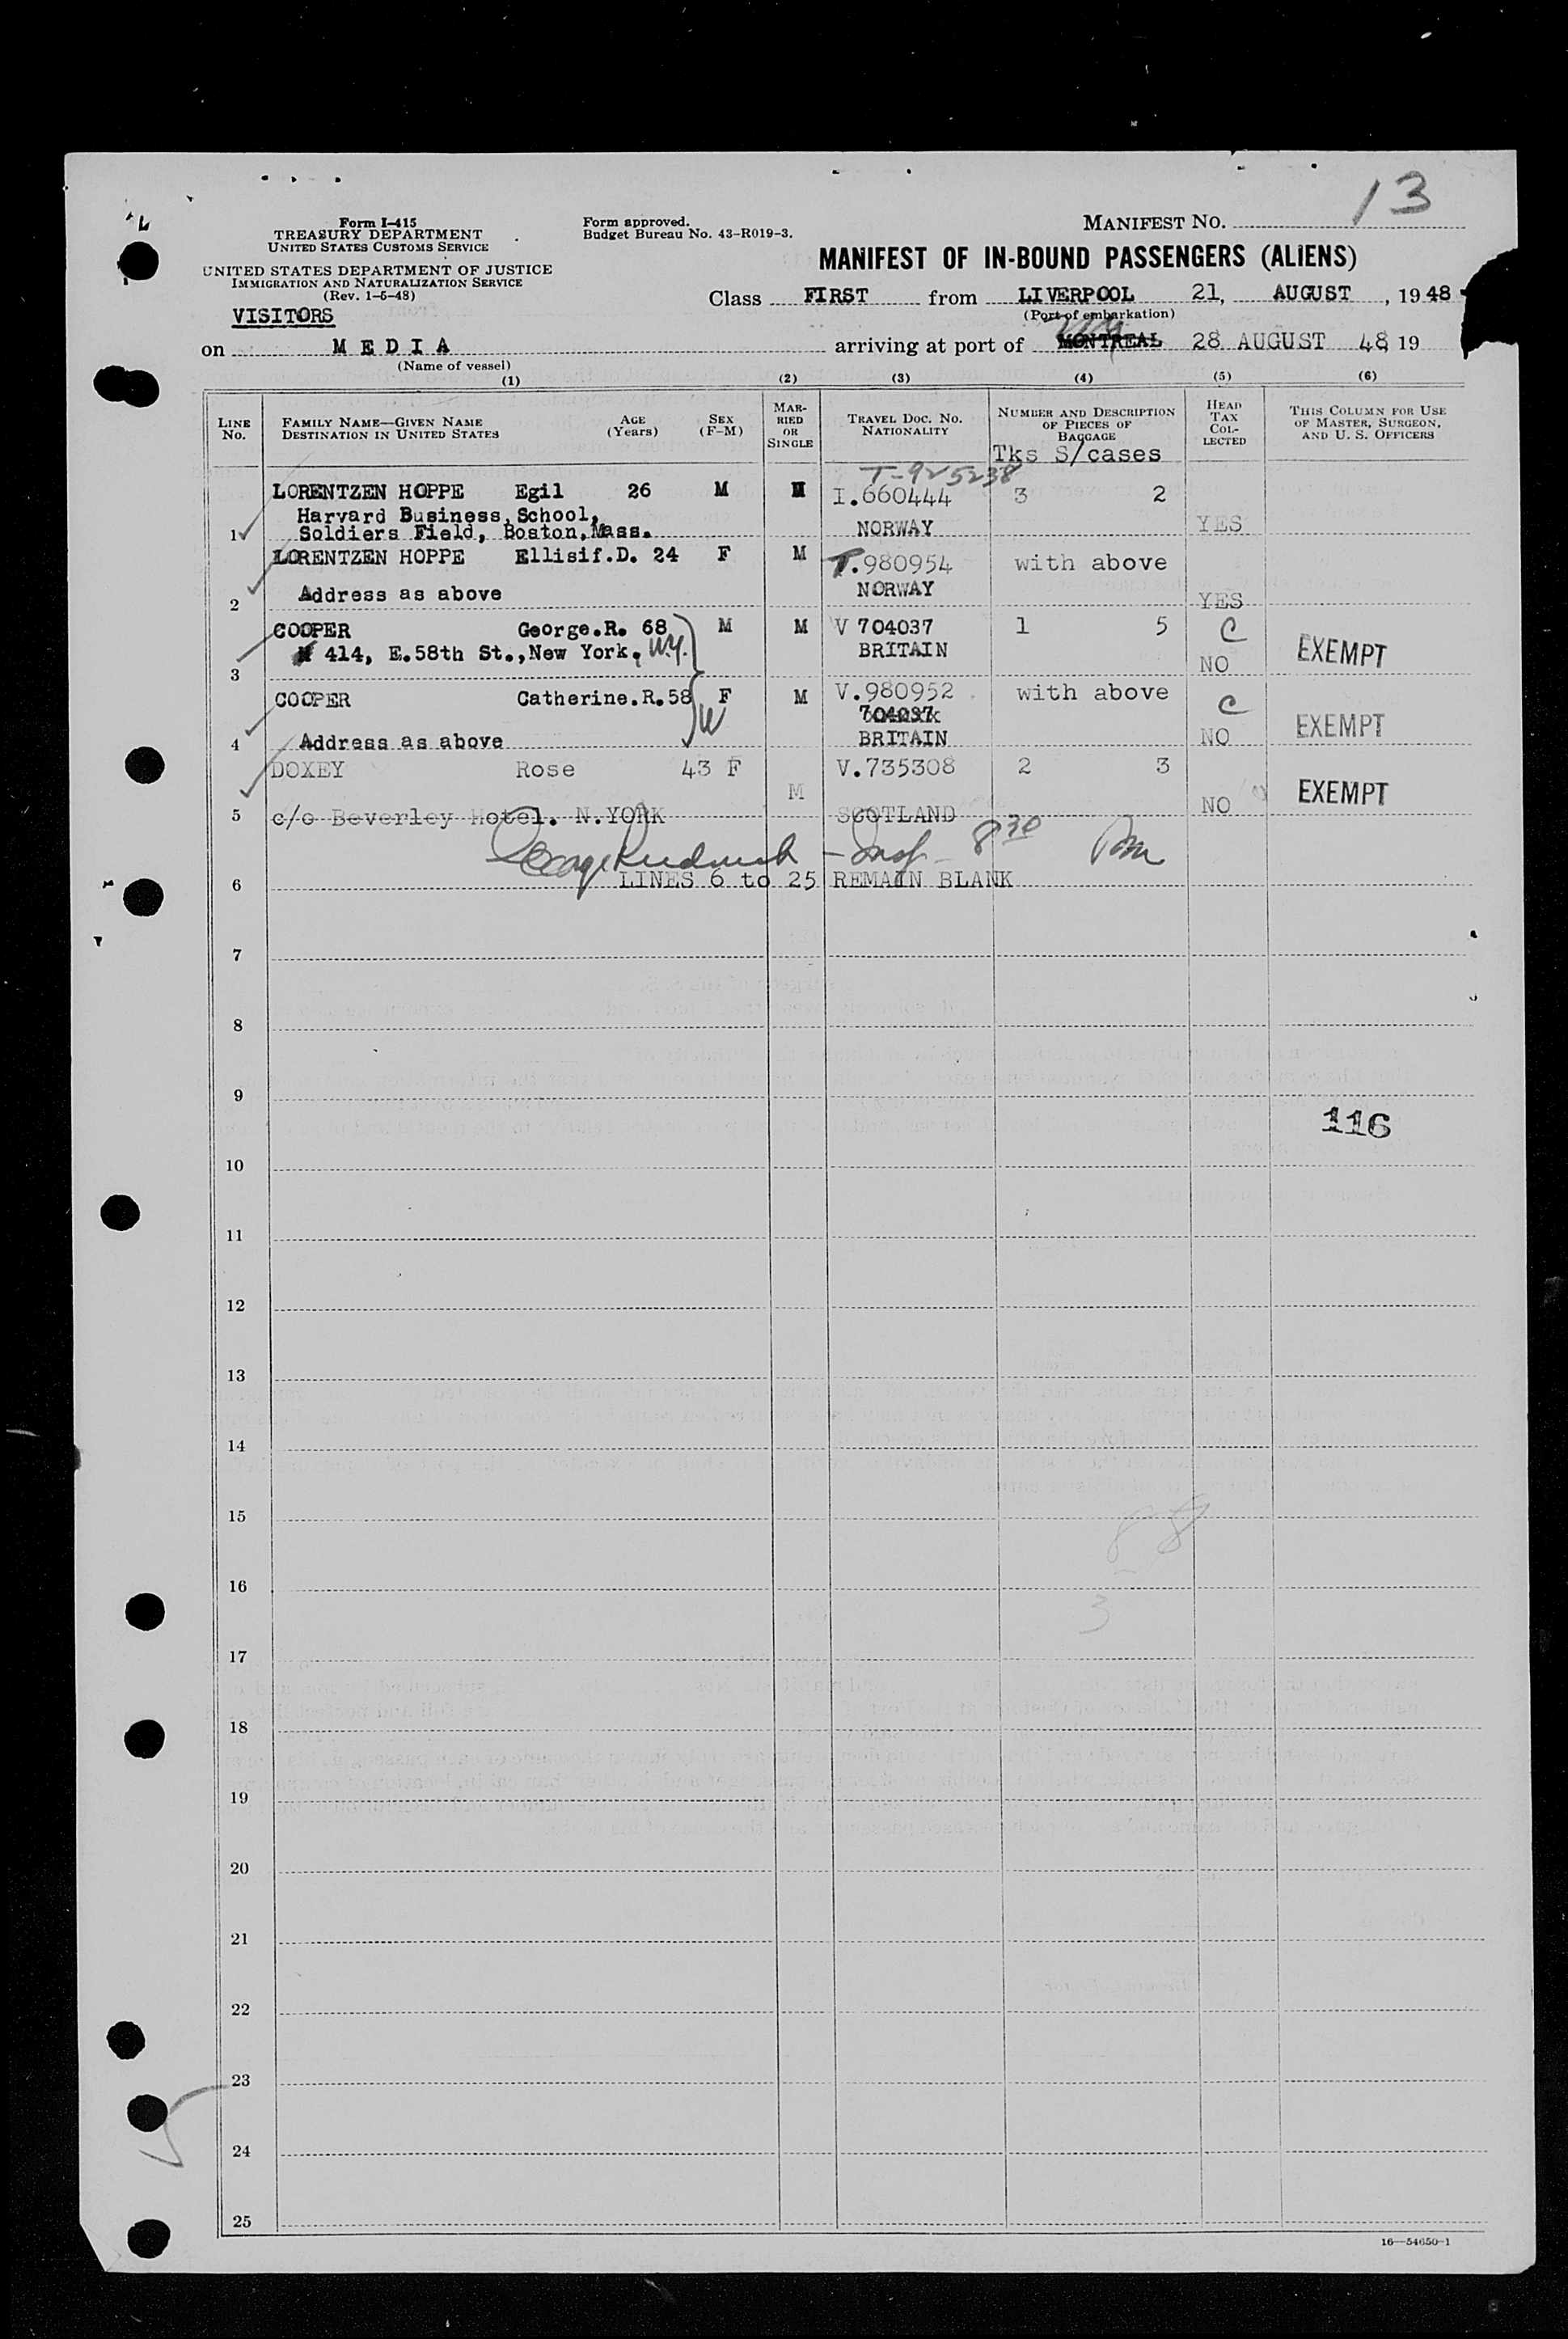 13
Form I-415
TREASURY DEPARTMENT
UNITED STATES CUSTOMS SERVICE
UNITED STATES DEPARTMENT OF JUSTICE
IMMIGRATION AND NATURALIZATION SERVICE
(Rev. 1-5-48)
VISITORS
Form approved.
Budget Bureau No. 43-R019-3.
MANIFEST NO.
MANIFEST OF IN-BOUND PASSENGERS (ALIENS)
Class FIRST from LIVERPOOL 21, AUGUST, 19 48
(Port of embarkation)
on MEDIA arriving at port of MONTREAL 28 AUGUST 48 19
(Name of vessel)
(1) (2) (3) (4) (5) (6)
LINE No. FAMILY NAME—GIVEN NAME DESTINATION IN UNITED STATES AGE (Years) SEX (F-M) MARRIED OR SINGLE TRAVEL DOC. NO. NATIONALITY NUMBER AND DESCRIPTION OF PIECES OF BAGGAGE HEAD TAX COLLECTED THIS COLUMN FOR USE OF MASTER, SURGEON, AND U. S. OFFICERS
Tks S/cases
T-925238
LORENTZEN HOPPE Egil 26 M M I.660444 3 2
Harvard Business School,
1 Soldiers Field, Boston, Mass. NORWAY YES
LORENTZEN HOPPE Ellisif.D. 24 F M T.980954 with above
2 Address as above NORWAY YES
COOPER George.R. 68 M M V 704037 1 5 C
414, E.58th St., New York, N.Y. BRITAIN EXEMPT
3 NO
COOPER Catherine.R. 58 F M V.980952 with above C
704037
4 Address as above BRITAIN NO EXEMPT
DOXEY Rose 43 F M V.735308 2 3
5 c/o Beverley Hotel. N.YORK SCOTLAND NO EXEMPT
8 30 Pm
6 LINES 6 to 25 REMAIN BLANK
7
8
9
116
10
11
12
13
14
15
88
16
3
17
18
19
20
21
22
23
24
25
16—54650-1